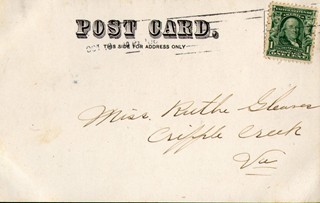 POST CARD.
THIS SIDE FOR ADDRESS ONLY
1
Miss. Ruthe Gleaves
Cripple Creek
Va